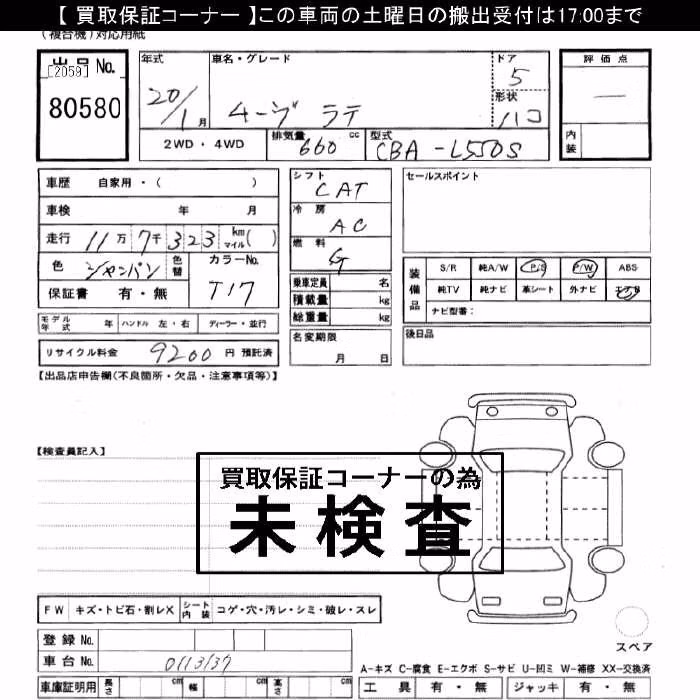 【 買取保証コーナー 】この車両の土曜日の搬出受付は17:00まで
(複合機)対応用紙
出品No.
[2059]
80580
年式
20/1月
車名・グレード
ムーヴ ラテ
ドア
5
形状
ハコ
評価点
一
内装
2WD・4WD
排気量 660 cc
型式 CBA-L550S
車歴 自家用・( )
車検 年 月
走行 11万7千323 km マイル( )
色 シャンパン 色替
カラーNo.
T17
保証書 有・無
シフト
CAT
冷房
AC
燃料
G
乗車定員 名
積載量 kg
総重量 kg
セールスポイント
装備品
S/R 純A/W P/S P/W ABS
純TV 純ナビ 革シート 外ナビ エアB
ナビ型番:
モデル年式 年 ハンドル 左・右 ディーラー・並行
名変期限
月 日
後日品
リサイクル料金 9200 円 預託済
【出品店申告欄(不良箇所・欠品・注意事項等)】
【検査員記入】
買取保証コーナーの為
未検査
FW キズ・トビ石・割レX シート内装 コゲ・穴・汚レ・シミ・破レ・スレ
登録No.
車台No. 0113137
スペア
A-キズ C-腐食 E-エクボ S-サビ U-凹ミ W-補修 XX-交換済
車庫証明用 長さ cm 幅 cm 高さ cm
工具 有・無 ジャッキ 有・無